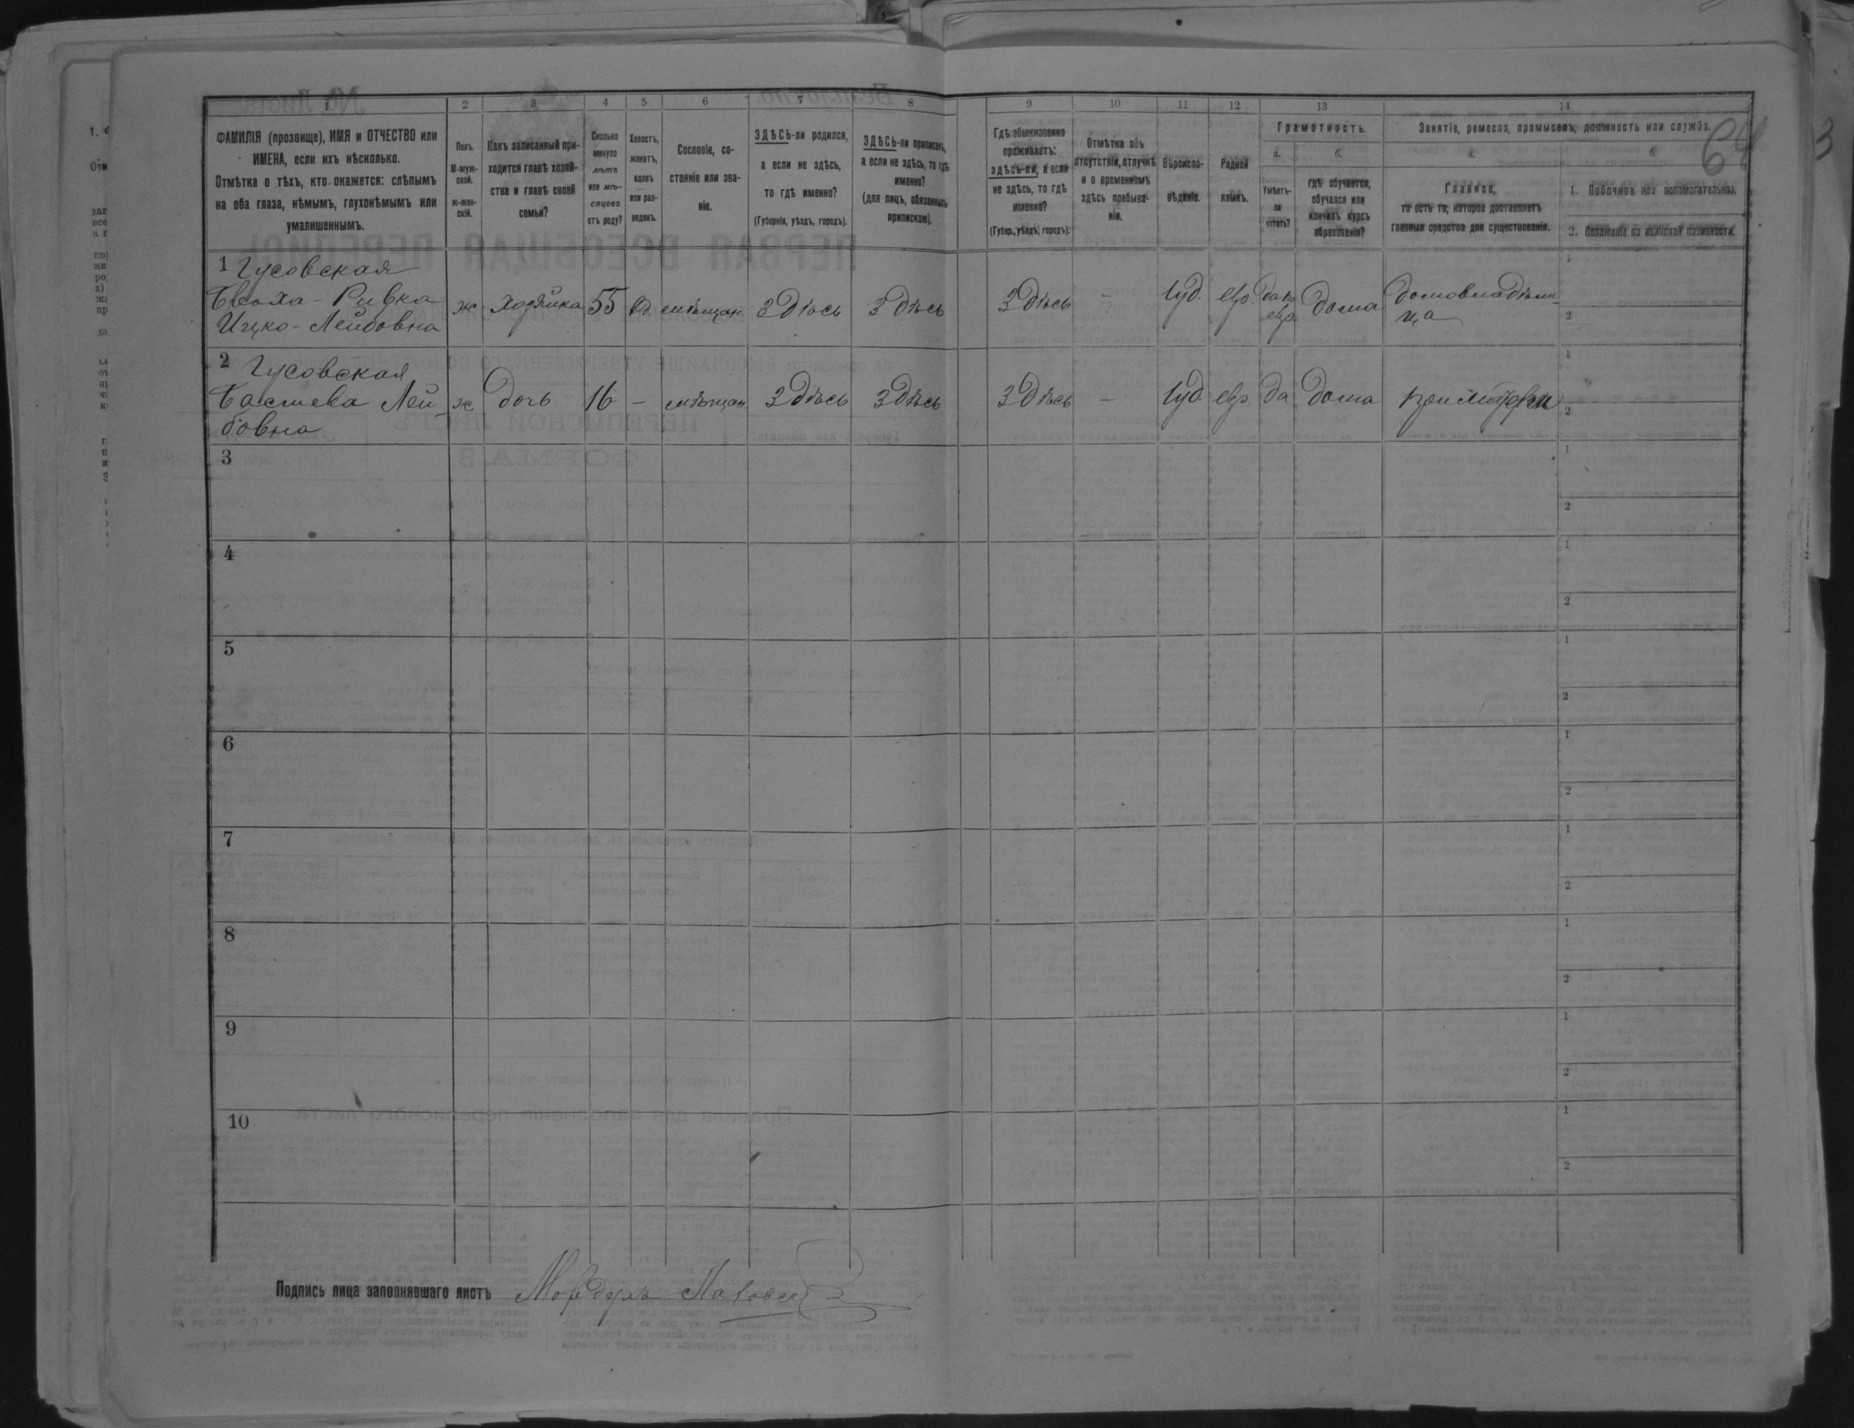 1 2 3 4 5 6 7 8 9 10 11 12 13 14
ФАМИЛІЯ (прозвище), ИМЯ и ОТЧЕСТВО или
ИМЕНА, если ихъ нѣсколько.
Отмѣтка о тѣхъ, кто окажется: слѣпымъ
на оба глаза, нѣмымъ, глухонѣмымъ или
умалишеннымъ.
Полъ.
М-муж-
ской.
ж-жен-
скій.
Какъ записанный при-
ходится главѣ хозяй-
ства и главѣ своей
семьи?
Сколько
минуло
лѣтъ
или мѣ-
сяцевъ
отъ роду?
Холостъ,
женатъ,
вдовъ
или раз-
веденъ.
Сословіе, со-
стояніе или зва-
ніе.
ЗДѢСЬ-ли родился,
а если не здѣсь,
то гдѣ именно?
(Губернія, уѣздъ, городъ).
ЗДѢСЬ-ли приписанъ,
а если не здѣсь, то гдѣ
именно?
(для лицъ, обязанныхъ
припискою).
Гдѣ обыкновенно
проживаетъ:
здѣсь-ли, а если
не здѣсь, то гдѣ
именно?
(Губерн., уѣздъ, городъ).
Отмѣтка объ
отсутствіи, отлучкѣ
и о временномъ
здѣсь пребыва-
ніи.
Вѣроиспо-
вѣданіе.
Родной
языкъ.
Грамотность.
а. б.
Умѣетъ-
ли
читать?
гдѣ обучается,
обучался или
кончилъ курсъ
образованія?
Занятіе, ремесло, промыселъ, должность или служба.
а. б.
Главное,
то есть то, которое доставляетъ
главныя средства для существованія.
1. Побочное или вспомогательное.
2. Положеніе по воинской повинности.
64
3
1 Гусовская
Двоха-Ривка
Ицко-Лейбовна
ж хозяйка 55 вд. мѣщан. Здѣсь Здѣсь Здѣсь - Іуд. евр. да Дома Домовладѣли-
ца
2 Гусовская
Басшева Лей-
бовна
ж. дочь 16 - мѣщан Здѣсь Здѣсь Здѣсь - Іуд. евр. да Дома при матери
3
4
5
6
7
8
9
10
Подпись лица заполнявшаго листъ